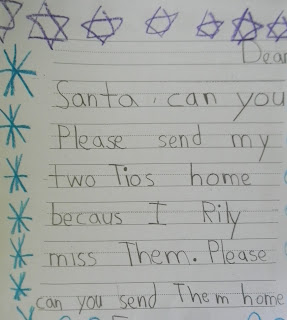 Dear
Santa, can you
Please send my
two Tios home
becaus I Rily
miss Them. Please
can you send Them home